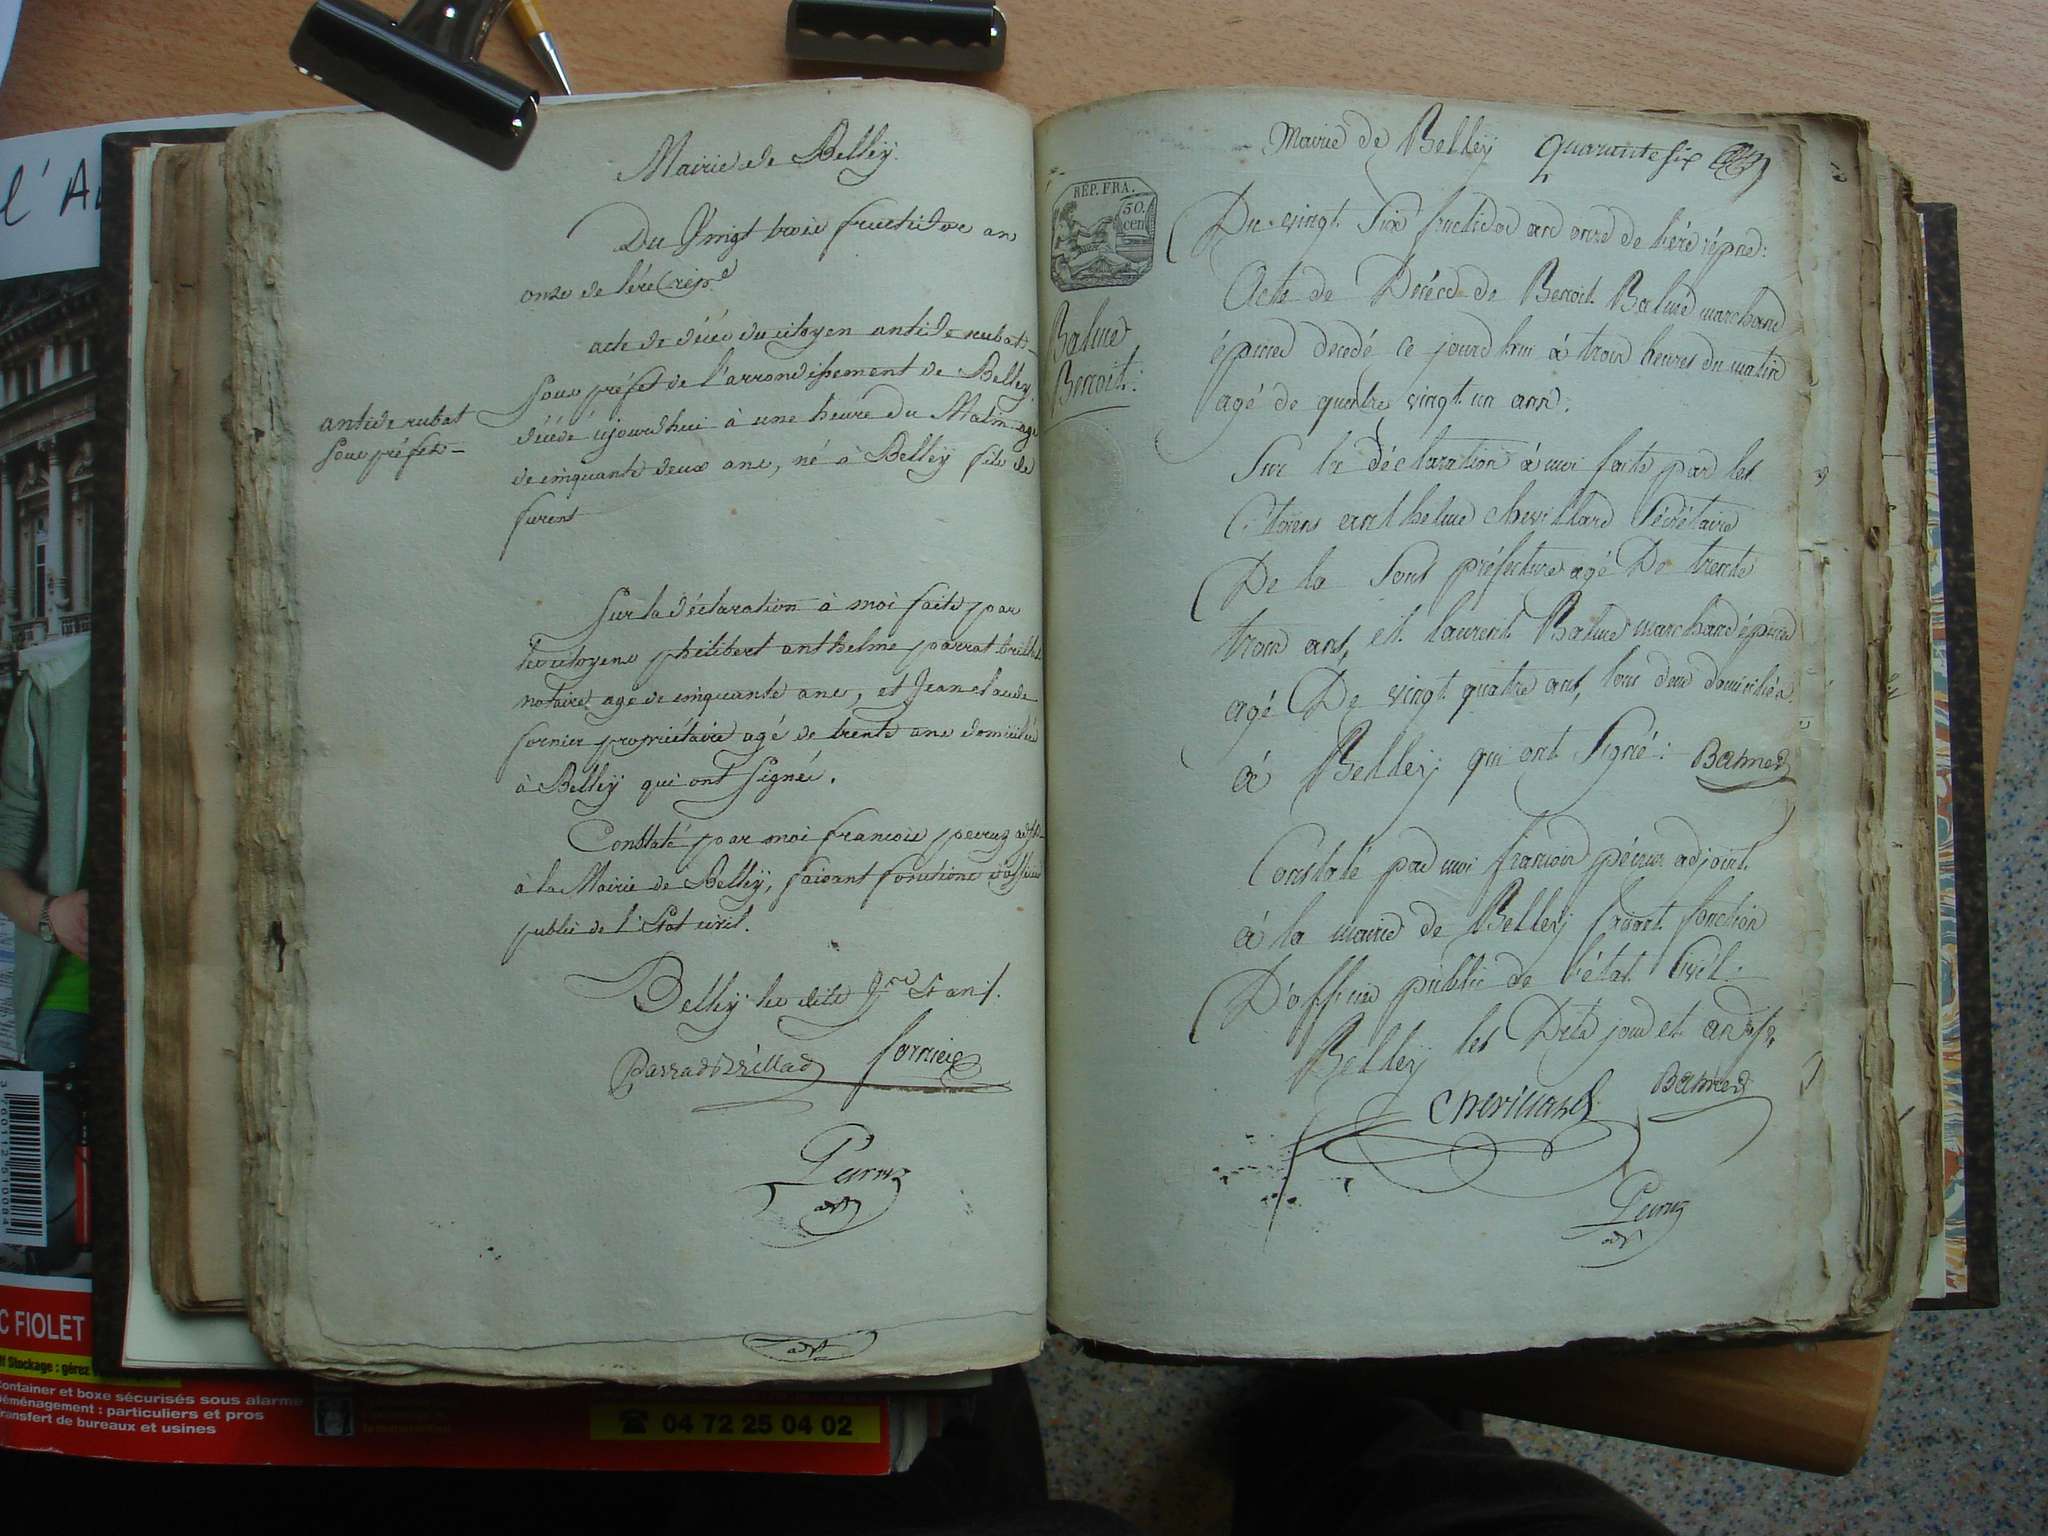 Mairie de Belley.
Du Vingt trois fructidor an
onze de l'ère rép.e
acte de décès du citoyen antide rubat
Sous préfet de l'arrondissement de Belley,
décédé ajourdhui à une heure du Matin agé
de cinquante deux ans, né à Belley fils de
furent
antide rubat
Sous préfet
Sur la déclaration à moi faite par
les citoyens philibert anthelme parrat brillat
notaire agé de cinquante ans, et Jean claude
fornier propriétaire agé de trente ans domiciliés
à Belley qui ont signé.
Constaté par moi francois peyruz adjt
à la Mairie de Belley, faisant fonctions d'officier
public de l'Etat civil.
Belley les dits jrs et an.
Parrad Brillad fornier
adt
adt
Mairie de Belley quarante six
RÉP. FRA.
50.
cen
Du vingt Six fructidor an onze de l'ère répne:
Acte de Décéd de Benoit Balme marchand
épicier decedé ce jourdhui à trois heures du matin
agé de quatre vingt un ans:
Balme
Benoit:
Sur la déclaration à moi faite par les
Citoiens anthelme chevillard Sécrétaire
De la Sous préfecture agé De trente
trois ans, et laurent Balme marchand épicier
agé De vingt quatre ans, tous deux domiciliés
à Belley qui ont Signé: Balmed
Constaté par moi francois péiruz adjoint
à la mairie de Belley faisant fonction
D'officier public de l'état Civil:
Belley les Dits jour et an
chevillard Balmed
adt
l'A
C FIOLET
lf Stockage : gérez
Container et boxe sécurisés sous alarme
Déménagement : particuliers et pros
Transfert de bureaux et usines
04 72 25 04 02
3 760112 510084